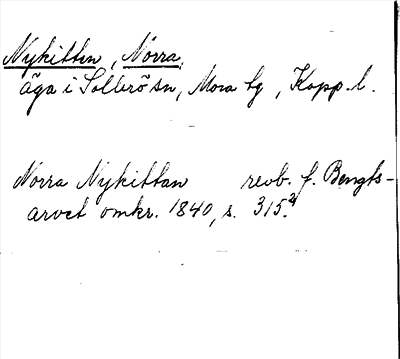 Nykittan, Norra,
äga i Sollerö sn, Mora tg, Kopp. l.
Norra Nykittan revb. f. Bengts-
arvet omkr. 1840, s. 315.